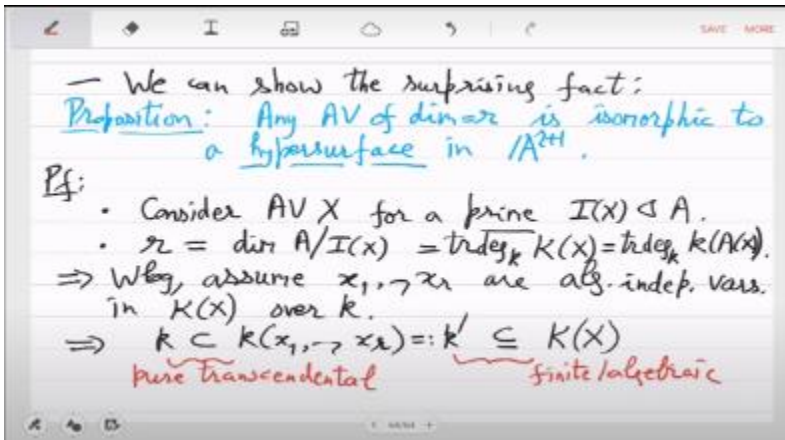 SAVE MORE
— We can show the surprising fact:
Proposition: Any AV of dim=r is isomorphic to
a hypersurface in /A^{r+1}.
Pf:
• Consider AV X for a prime I(X) ◁ A.
• r = dim A/I(X) = trdeg_k K(X) = trdeg_k k(A(X)).
⇒ Wlog, assume x_1,..,x_r are alg. indep. vars.
in K(X) over k.
⇒ k ⊂ k(x_1,..,x_r) =: k' ⊆ K(X)
pure transcendental finite/algebraic